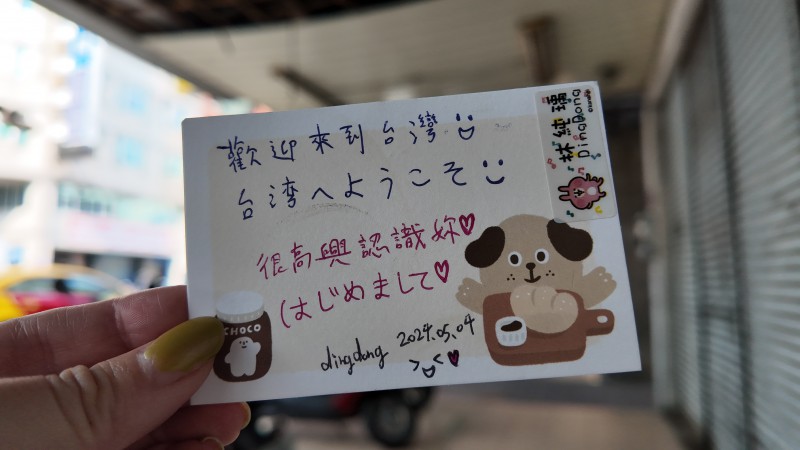 歡迎來到台灣
台湾へようこそ
很高興認識妳
はじめまして
dingdong 2024.05.04
林純璿
DingDong
CHOCO